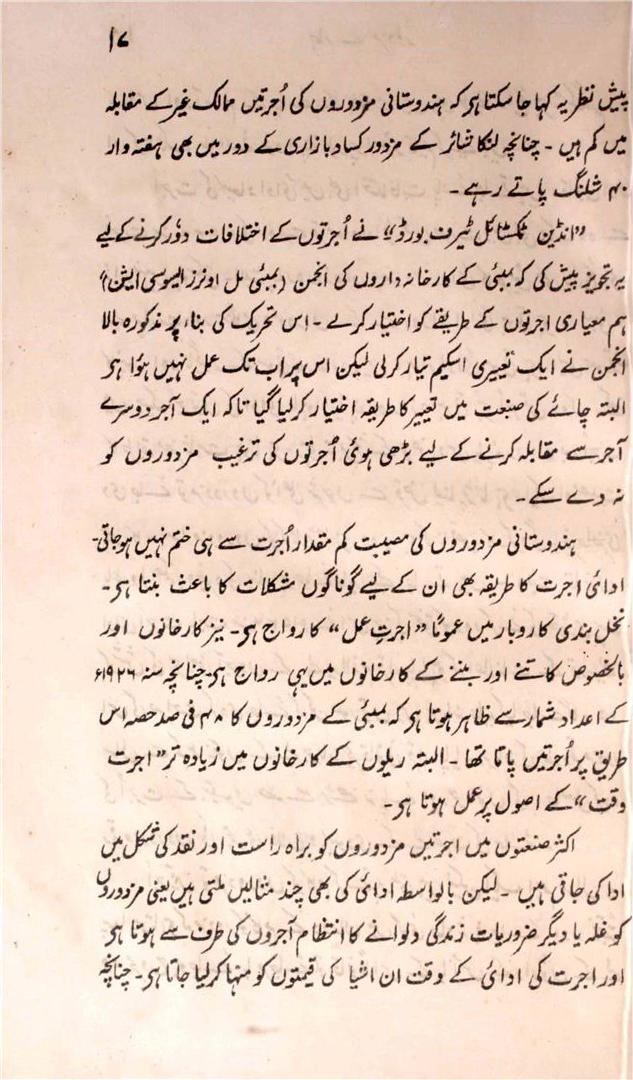 ۱۷
پیش نظر یہ کہا جا سکتا ہر کہ ہندوستانی مزدوروں کی اُجرتیں ممالک غیر کے مقابلہ
میں کم ہیں ۔ چنانچہ لنکا شائر کے مزدور کساد بازاری کے دور میں بھی ہفتہ وار
۴۰ شلنگ پاتے رہے ۔
"انڈین ٹکسٹائل ٹیرف بورڈ" نے اُجرتوں کے اختلافات دوٗر کرنے کے لیے
یہ تجویز پیش کی کہ بمبئی کے کارخانہ داروں کی انجمن (بمبئی مل اونرز ایسوسی ایشن)
ہم معیاری اجرتوں کے طریقے کو اختیار کرلے ۔ اس تحریک کی بناء پر مذکورہ بالا
انجمن نے ایک تعییری اسکیم تیار کرلی لیکن اس پر اب تک عمل نہیں ہوٗا ہر
البتہ چائے کی صنعت میں تعییر کا طریقہ اختیار کرلیا گیا تاکہ ایک آجر دوسرے
آجر سے مقابلہ کرنے کے لیے بڑھی ہوئی اُجرتوں کی ترغیب مزدوروں کو
نہ دے سکے ۔
ہندوستانی مزدوروں کی مصیبت کم مقدار اُجرت سے ہی ختم نہیں ہوجاتی۔
ادائی اجرت کا طریقہ بھی ان کے لیے گوناگوں مشکلات کا باعث بنتا ہر ۔
نخل بندی کاروبار میں عموماً "اجرتِ عمل" کا رواج ہر ۔ نیز کارخانوں اور
بالخصوص کاتنے اور بننے کے کارخانوں میں یہی رواج ہر چنانچہ سنہ ۱۹۲۶ء
کے اعداد شمار سے ظاہر ہوتا ہر کہ بمبئی کے مزدوروں کا ۴۸ فی صد حصہ اس
طریق پر اُجرتیں پاتا تھا ۔ البتہ ریلوں کے کارخانوں میں زیادہ تر "اجرت
وقت" کے اصول پر عمل ہوتا ہر ۔
اکثر صنعتوں میں اجرتیں مزدوروں کو براہ راست اور نقد کی شکل میں
ادا کی جاتی ہیں ۔ لیکن بالواسطہ ادائی کی بھی چند مثالیں ملتی ہیں یعنی مزدوروں
کو غلہ یا دیگر ضروریات زندگی دلوانے کا انتظام آجروں کی طرف سے ہوتا ہر
اور اجرت کی ادائی کے وقت ان اشیا کی قیمتوں کو منہا کرلیا جاتا ہر ۔ چنانچہ